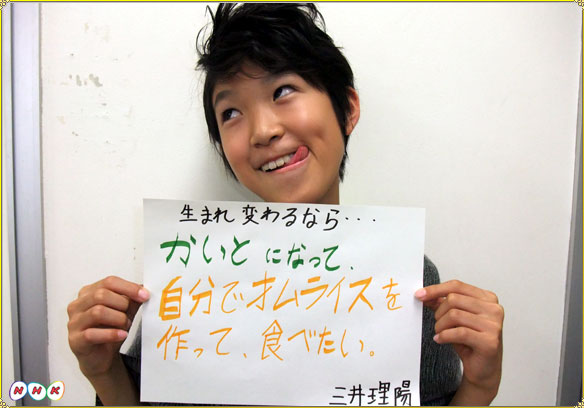 生まれ変わるなら・・・
かいとになって、
自分でオムライスを
作って、食べたい。
三井理陽
NHK